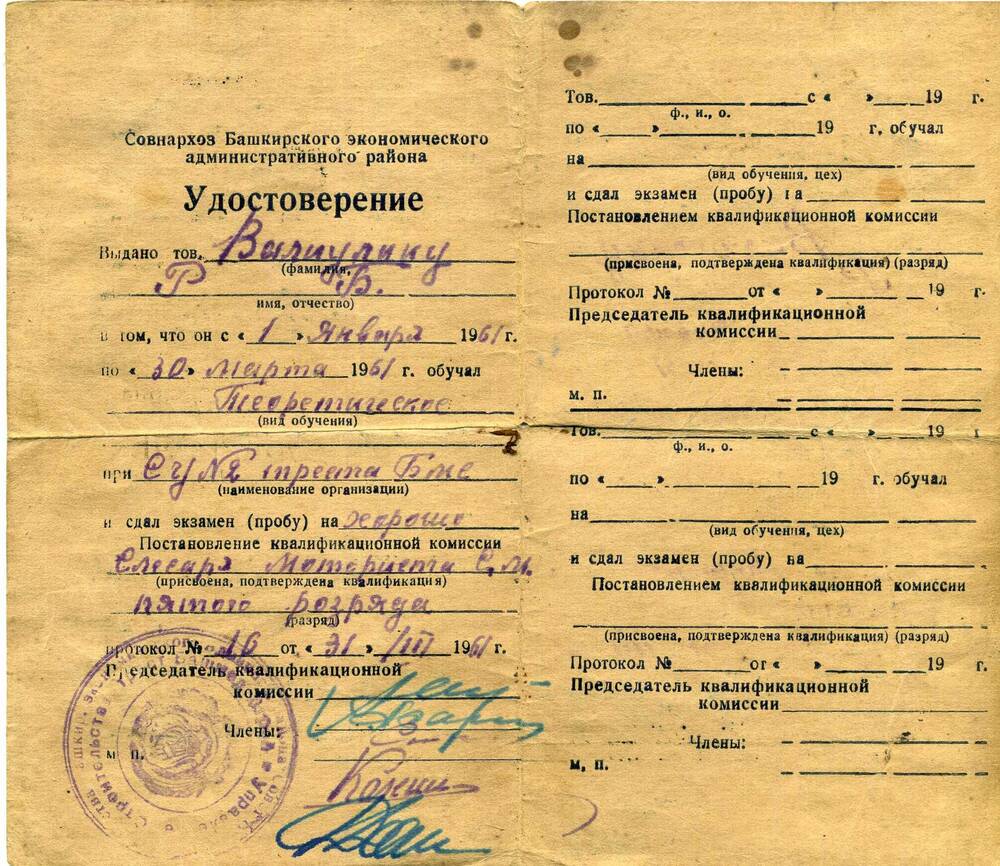 Совнархоз Башкирского экономического
административного района
Удостоверение
Выдано тов. Валиулину
(фамилия,
Р Б.
имя, отчество)
в том, что он с « 1 » Января 1961 г.
по « 30 » марта 1961 г. обучал
Теоретическое
(вид обучения)
при СУ №2 треста
(наименование организации)
и сдал экзамен (пробу) на хорошо
Постановление квалификационной комиссии
Слесаря Моториста С.М.
(присвоена, подтверждена квалификация)
пятого розряда
(разряд)
протокол № 16 от « 31 » /III 1961 г.
Председатель квалификационной
комиссии
Члены:
м п.
Тов. с « » 19 г.
ф., и., о.
по « » 19 г, обучал
на
(вид обучения, цех)
и сдал экзамен (пробу) на
Постановлением квалификационной комиссии
(присвоена, подтверждена квалификация) (разряд)
Протокол № от « » 19 г.
Председатель квалификационной
комиссии
Члены:
м. п.
Тов. с « » 19 г.
ф., и., о.
по « » 19 г. обучал
на
(вид обучения, цех)
и сдал экзамен (пробу) на
Постановлением квалификационной комиссии
(присвоена, подтверждена квалификация) (разряд)
Протокол № от « » 19 г.
Председатель квалификационной
комиссии
Члены:
м, п.